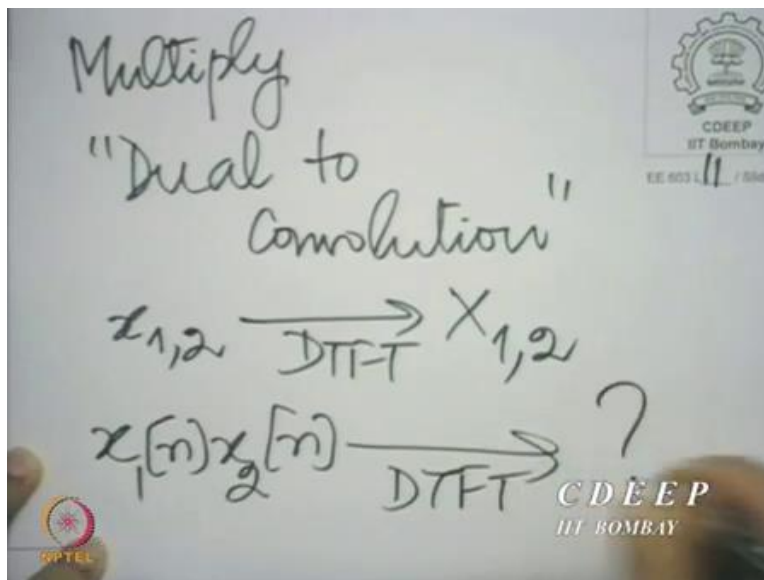 Multiply
"Dual to
Convolution"
x₁,₂ DTFT X₁,₂
x₁[n]x₂[n] DTFT ?
CDEEP
IIT Bombay
EE 603 L 11 / Slid
CDEEP
IIT BOMBAY
NPTEL